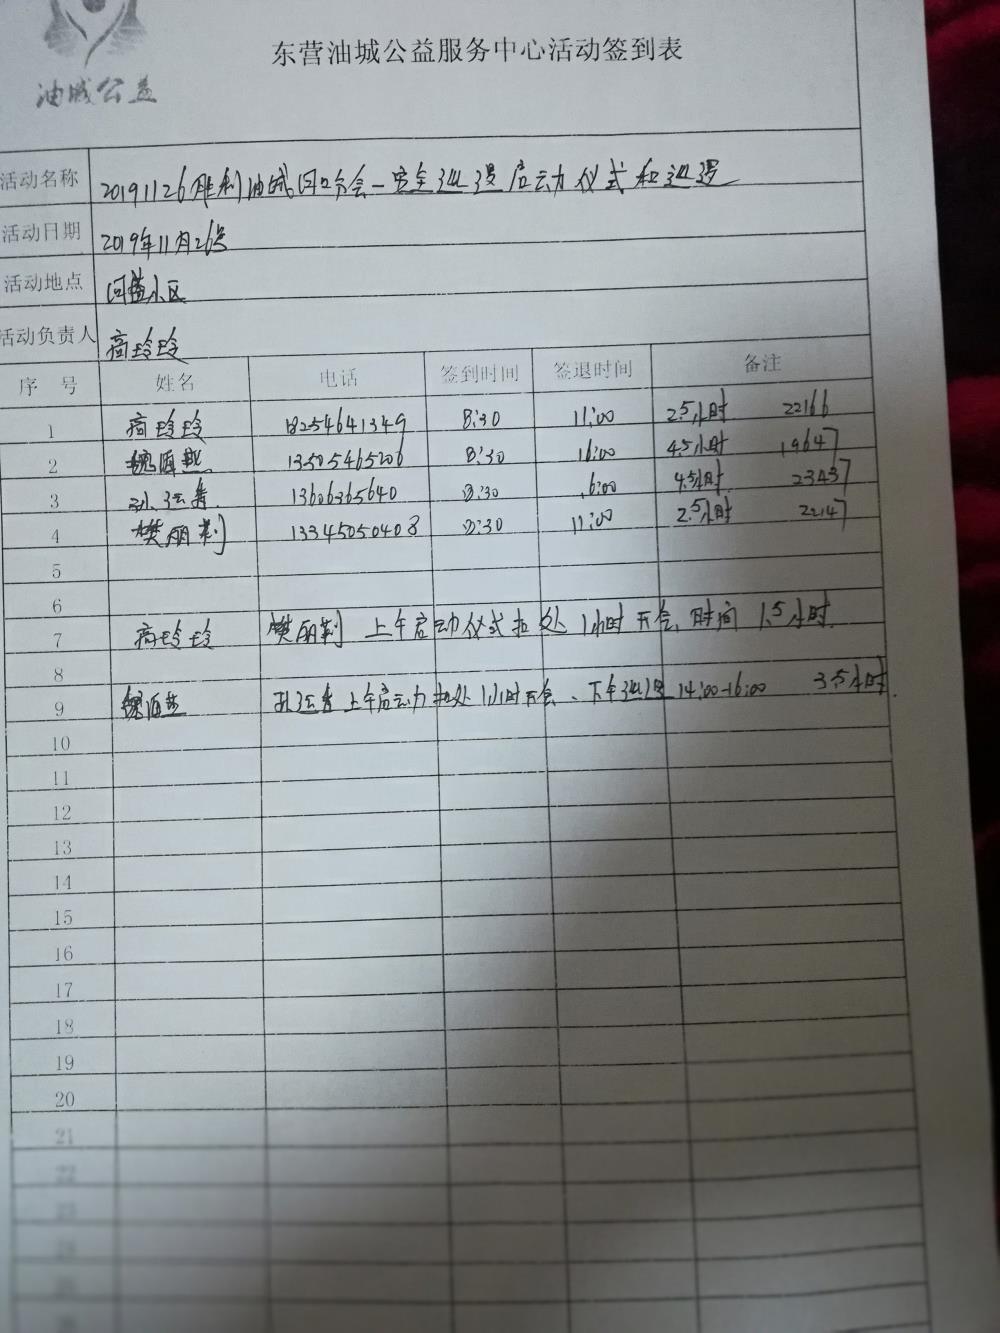 油城公益
东营油城公益服务中心活动签到表
活动名称 20191126胜利油城河口分会-安全巡逻启动仪式和巡逻
活动日期 2019年11月26号
活动地点 河盛小区
活动负责人 高玲玲
序 号 姓名 电话 签到时间 签退时间 备注
1 高玲玲 18254641349 8:30 11:00 2.5小时 22166
2 13505465206 8:30 16:00 4.5小时 19647
3 13606365640 8:30 16:00 4.5小时 23437
4 樊丽荆 13345050408 8:30 11:00 2.5小时 22147
5
6
7 高玲玲 樊丽荆 上午启动仪式 1小时开会 时间 1.5小时
8
9 上午启动 1小时开会、下午巡逻 14:00-16:00 3.5小时
10
11
12
13
14
15
16
17
18
19
20
21
22
23